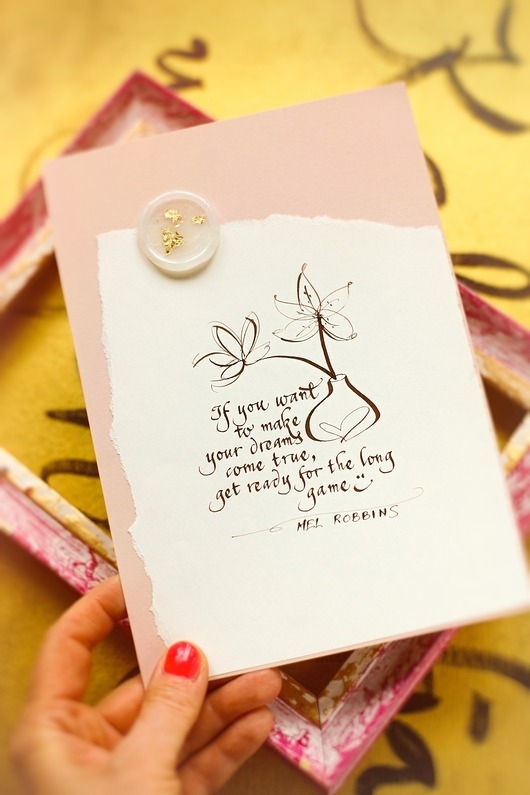 If you want
to make
your dreams
come true,
get ready for the long
game
MEL ROBBINS